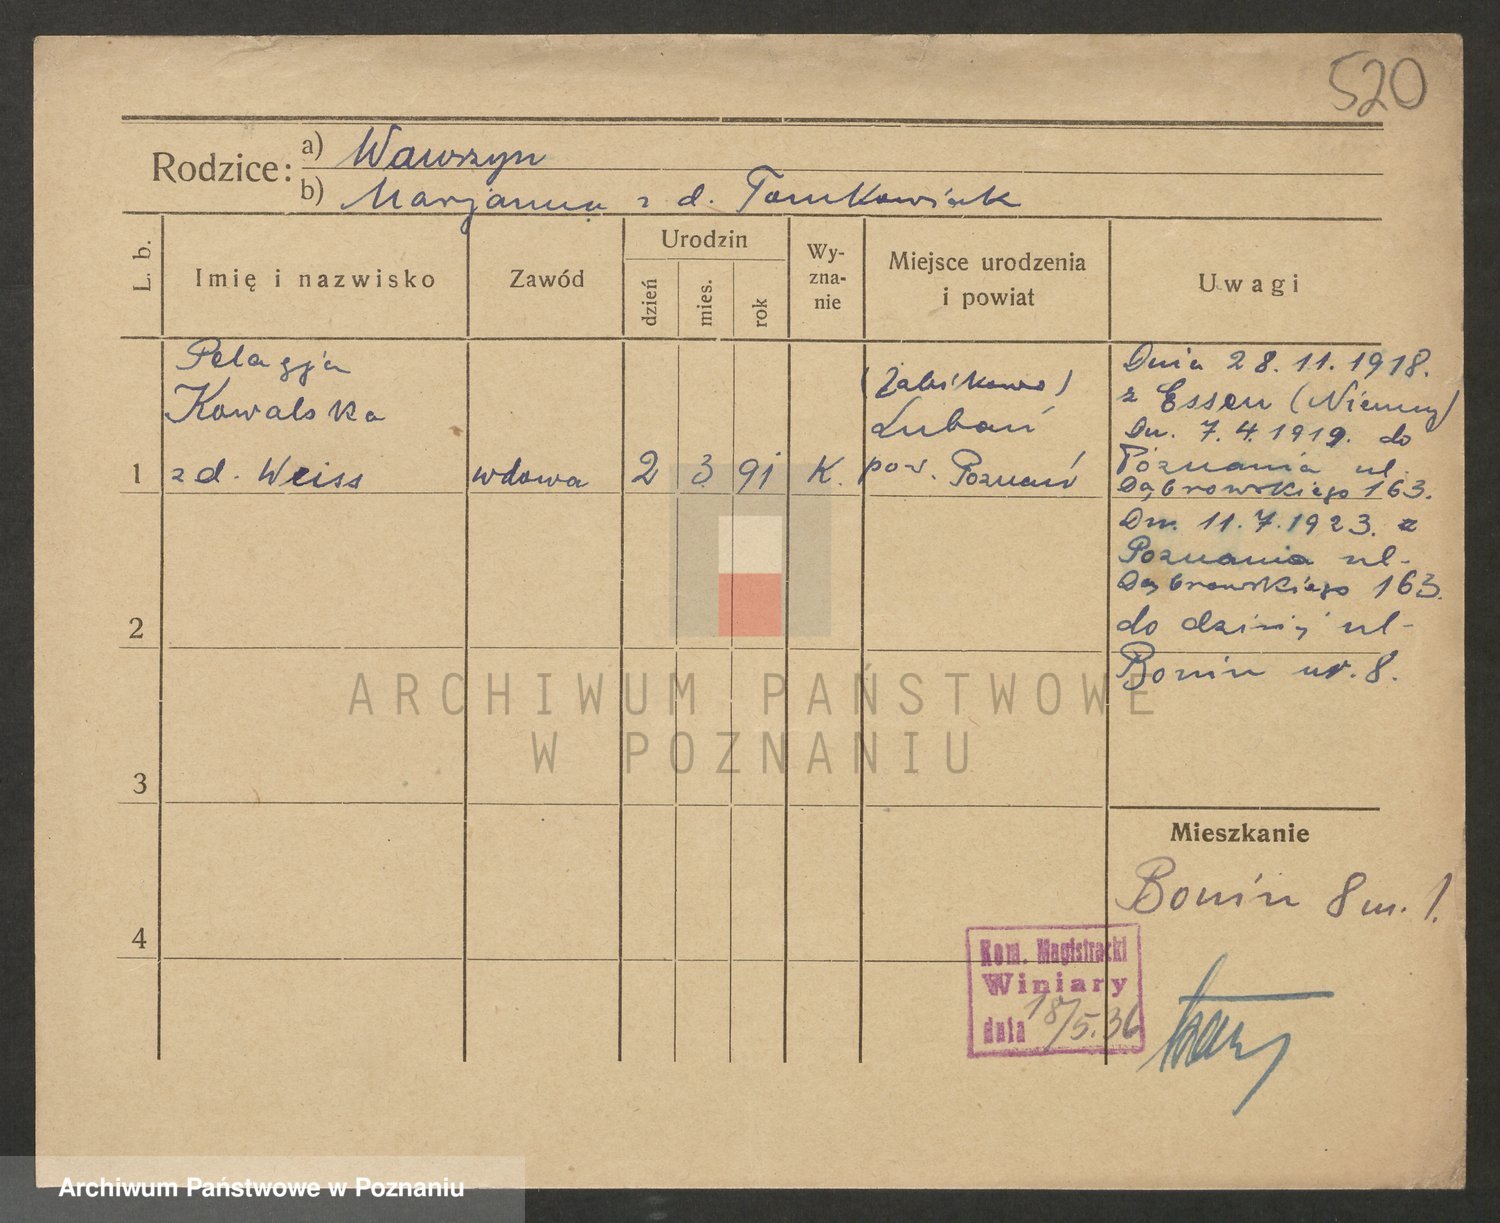 520
Rodzice:
a) Wawrzyn
b) Marjanna z d. Tomkowiak
L. b.
Imię i nazwisko
Zawód
Urodzin
dzień
mies.
rok
Wy-
zna-
nie
Miejsce urodzenia
i powiat
Uwagi
Pelagja
Kowalska
1 z d. Weiss wdowa 2 3 91 K.
(Żabikowo)
Luboń
pow. Poznań
Dnia 28.11.1918.
z Essen (Niemcy)
Dn. 7.4.1919. do
Poznania ul.
Dąbrowskiego 163.
Dn. 11.7.1923. z
Poznania ul.
Dąbrowskiego 163.
do dzisiej ul.
Bonin nr. 8.
2
3
4
Mieszkanie
Bonin 8 m. 1.
Kom. Magistracki
Winiary
dnia 18/5.36
ARCHIWUM PAŃSTWOWE
W POZNANIU
Archiwum Państwowe w Poznaniu